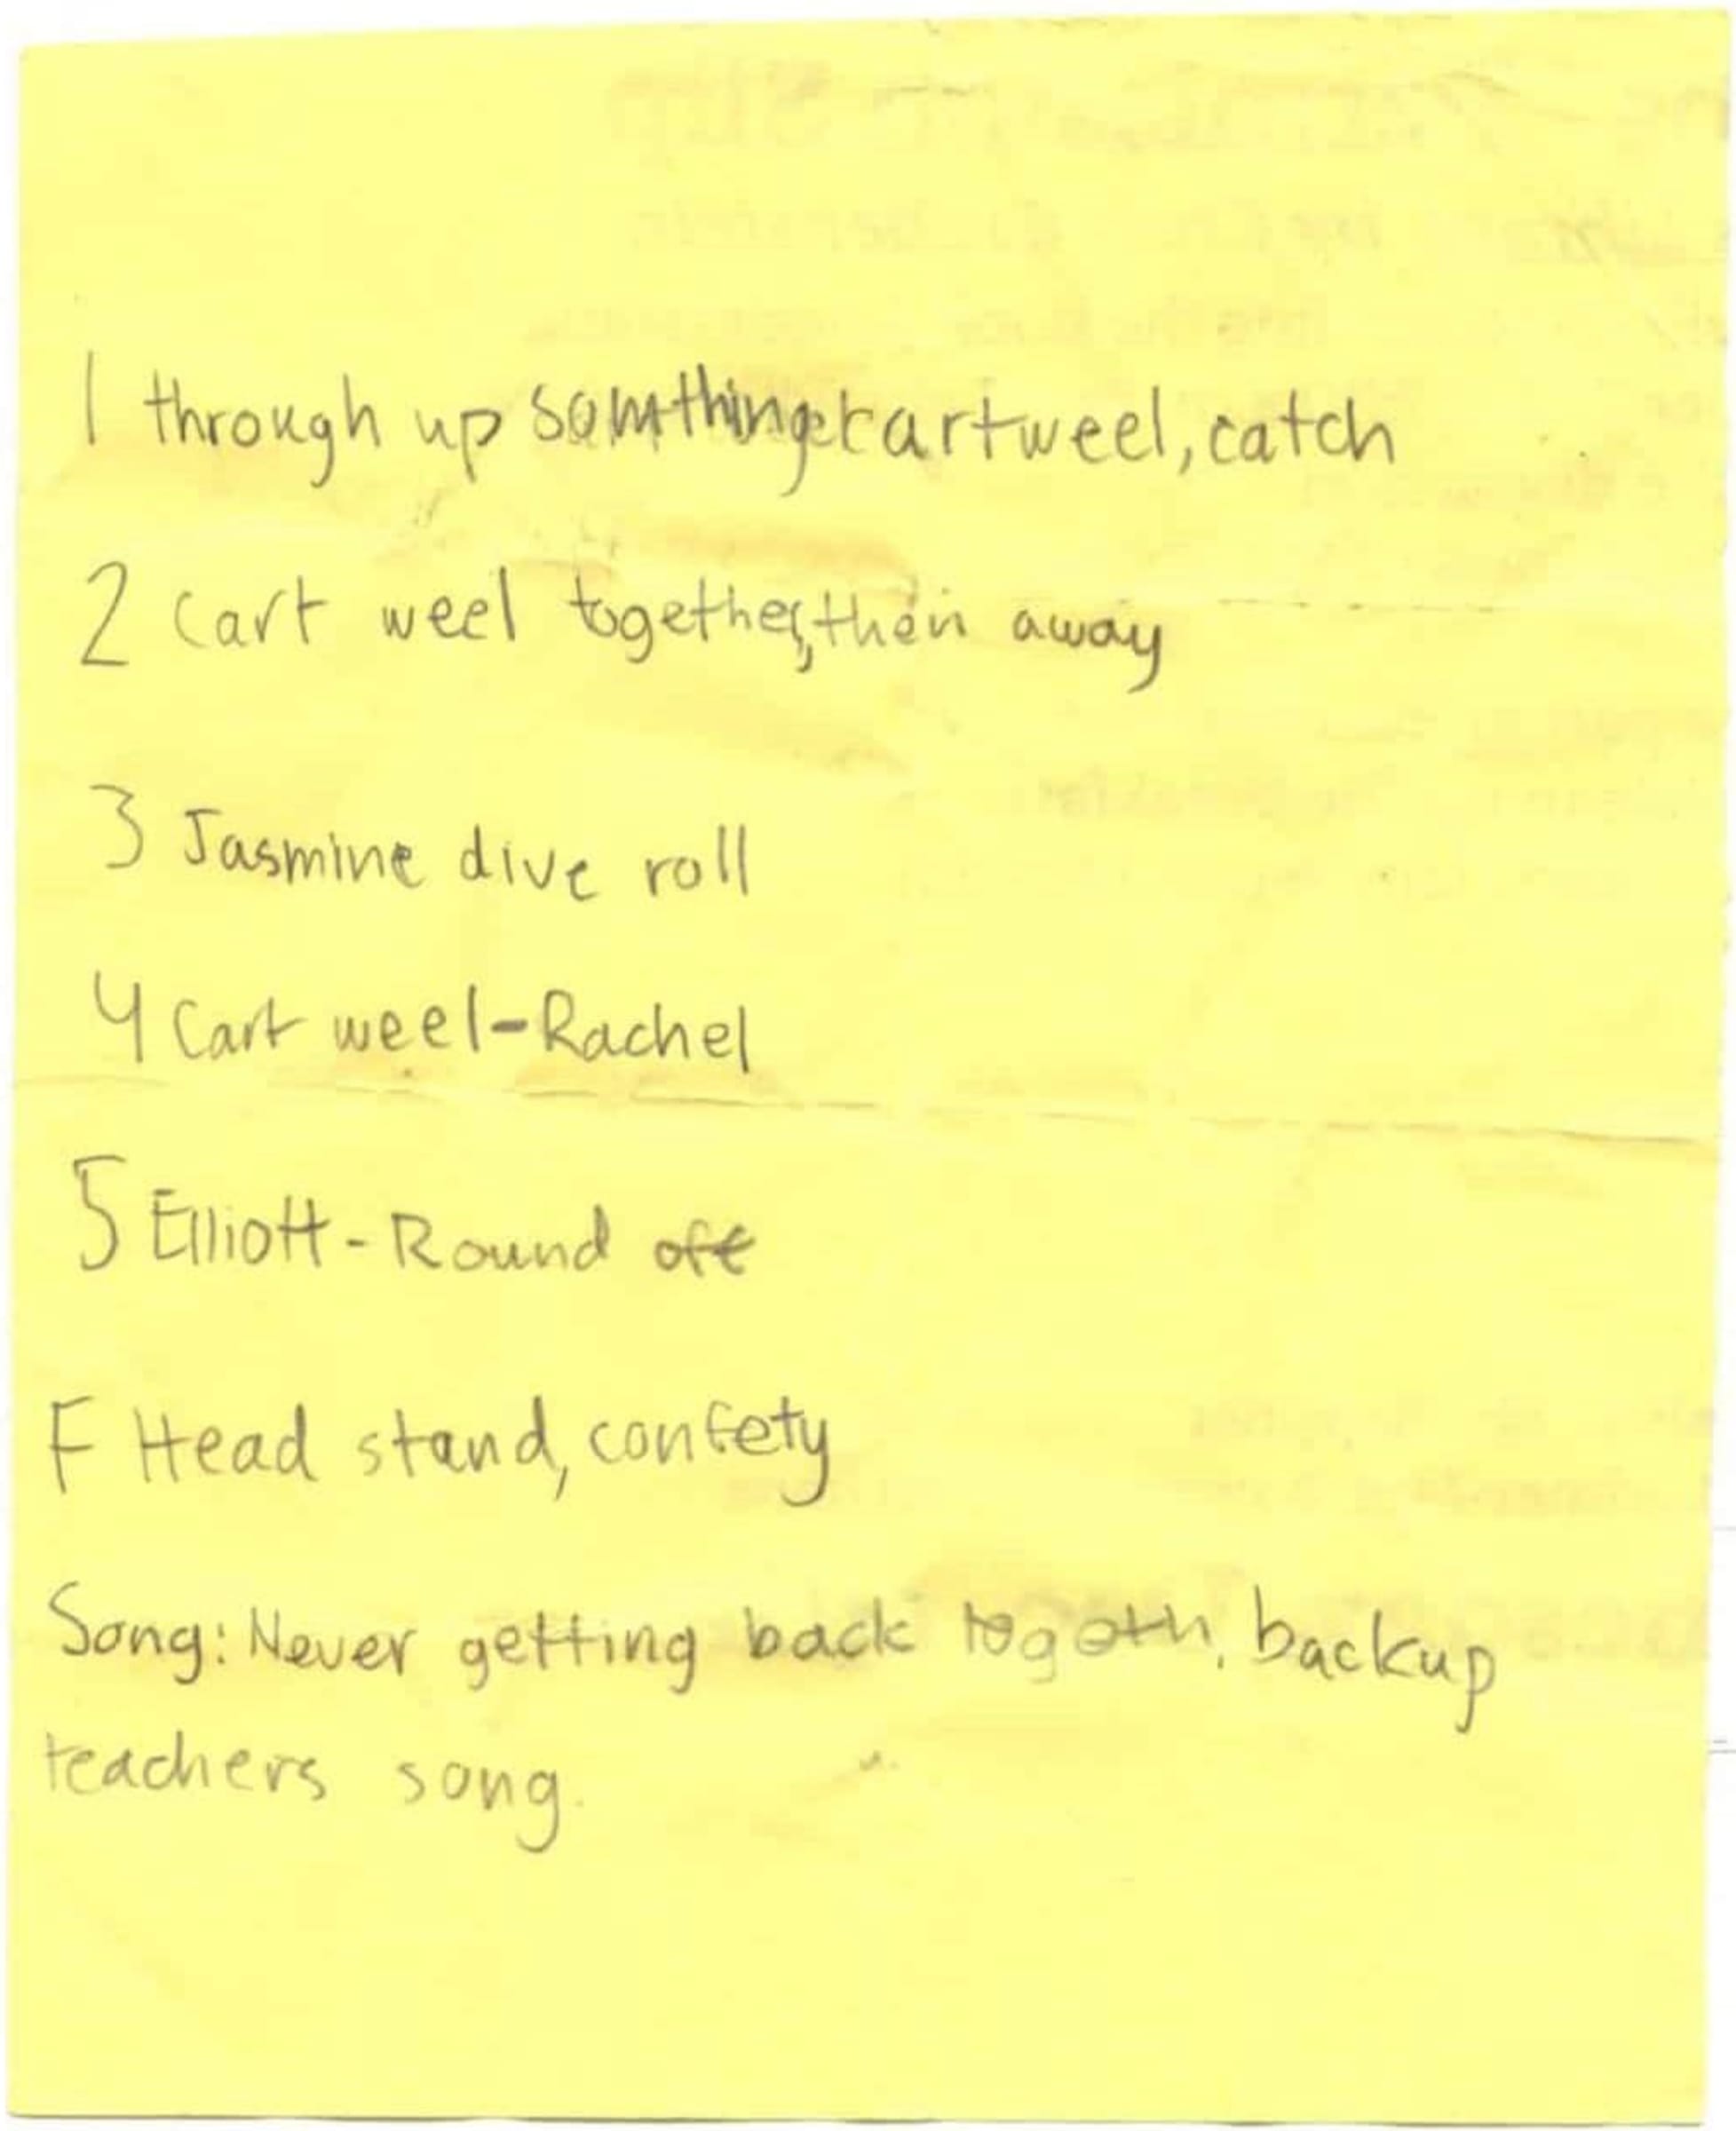 1 through up somthing cartweel, catch
2 Cart weel together, then away
3 Jasmine dive roll
4 Cart weel-Rachel
5 Elliott-Round off
F Head stand, confety
Song: Never getting back togeth. backup
teachers song.